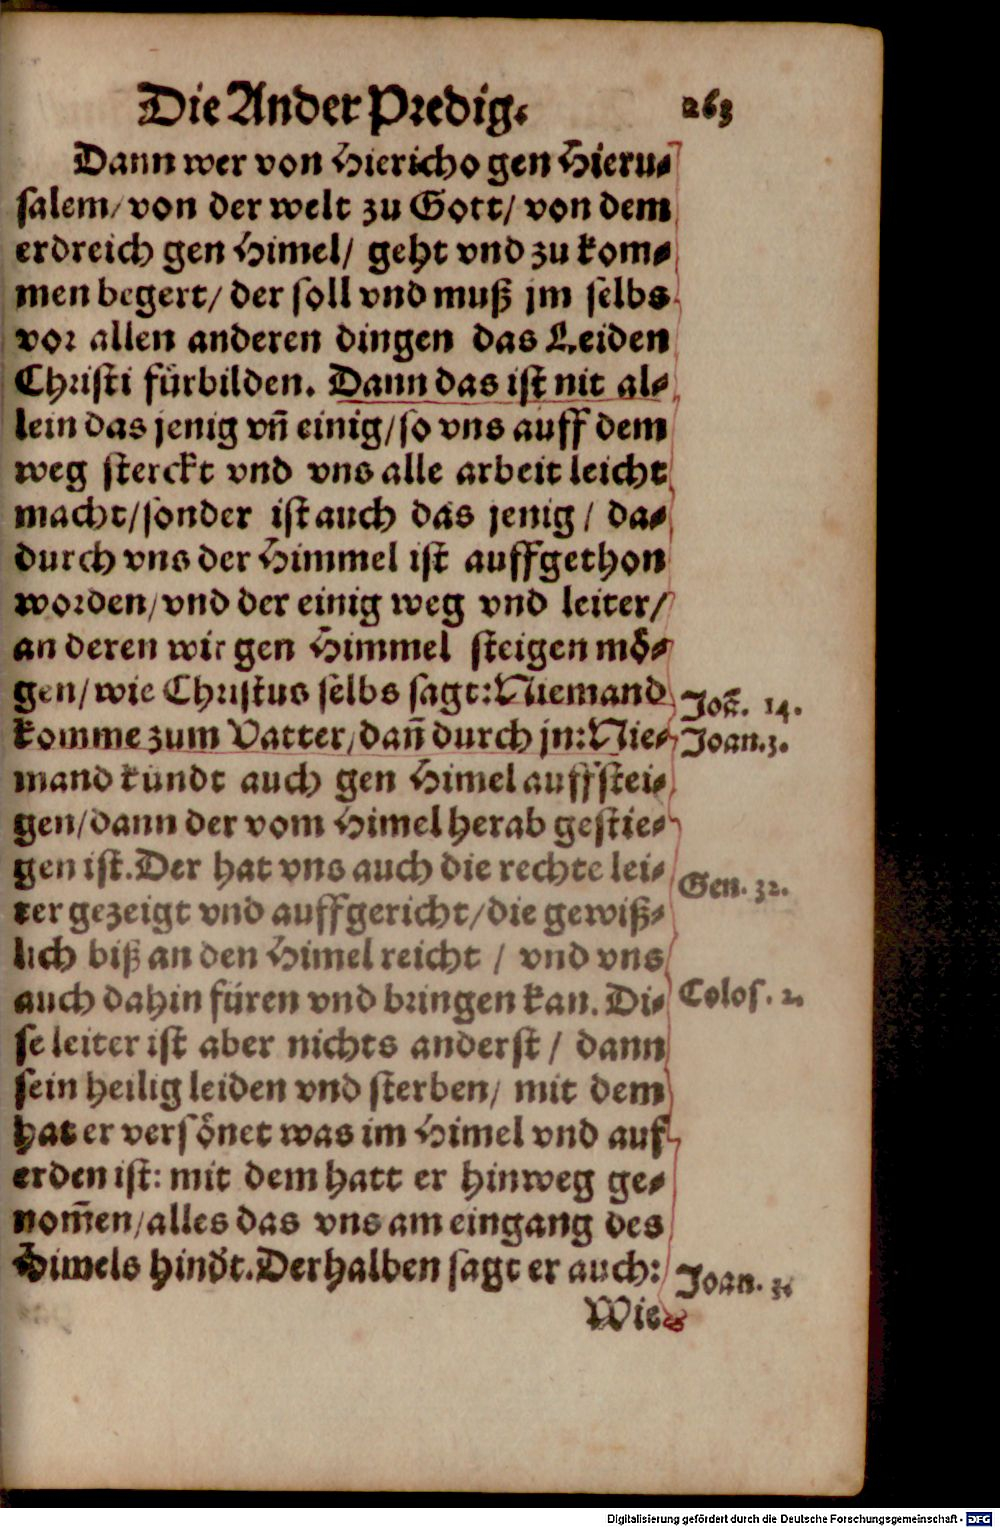 Die Ander Predig. 263
Dann wer von Hiericho gen Hieru-
salem/ von der welt zu Gott/ von dem
erdreich gen Himel/ geht vnd zu kom-
men begert/ der soll vnd muß jm selbs
vor allen anderen dingen das Leiden
Christi fürbilden. Dann das ist nit al-
lein das jenig vñ einig/ so vns auff dem
weg sterckt vnd vns alle arbeit leicht
macht/ sonder ist auch das jenig / da-
durch vns der Himmel ist auffgethon
worden/ vnd der einig weg vnd leiter/
an deren wir gen Himmel steigen mö-
gen/ wie Christus selbs sagt: Niemand
Joã. 14.
komme zum Vatter/ dañ durch jn: Nie-
Joan. 3.
mand kündt auch gen Himel auffstei-
gen/ dann der vom Himel herab gestie-
gen ist. Der hat vns auch die rechte lei-
Gen. 32.
ter gezeigt vnd auffgericht/ die gewiß-
lich biß an den Himel reicht / vnd vns
auch dahin füren vnd bringen kan. Di-
Colos. 2.
se leiter ist aber nichts anderst / dann
sein heilig leiden vnd sterben/ mit dem
hat er versönet was im Himel vnd auf
erden ist: mit dem hatt er hinweg ge-
nom̃en/ alles das vns am eingang des
Himels hindt. Derhalben sagt er auch:
Joan. 3.
Wie
Digitalisierung gefördert durch die Deutsche Forschungsgemeinschaft - DFG